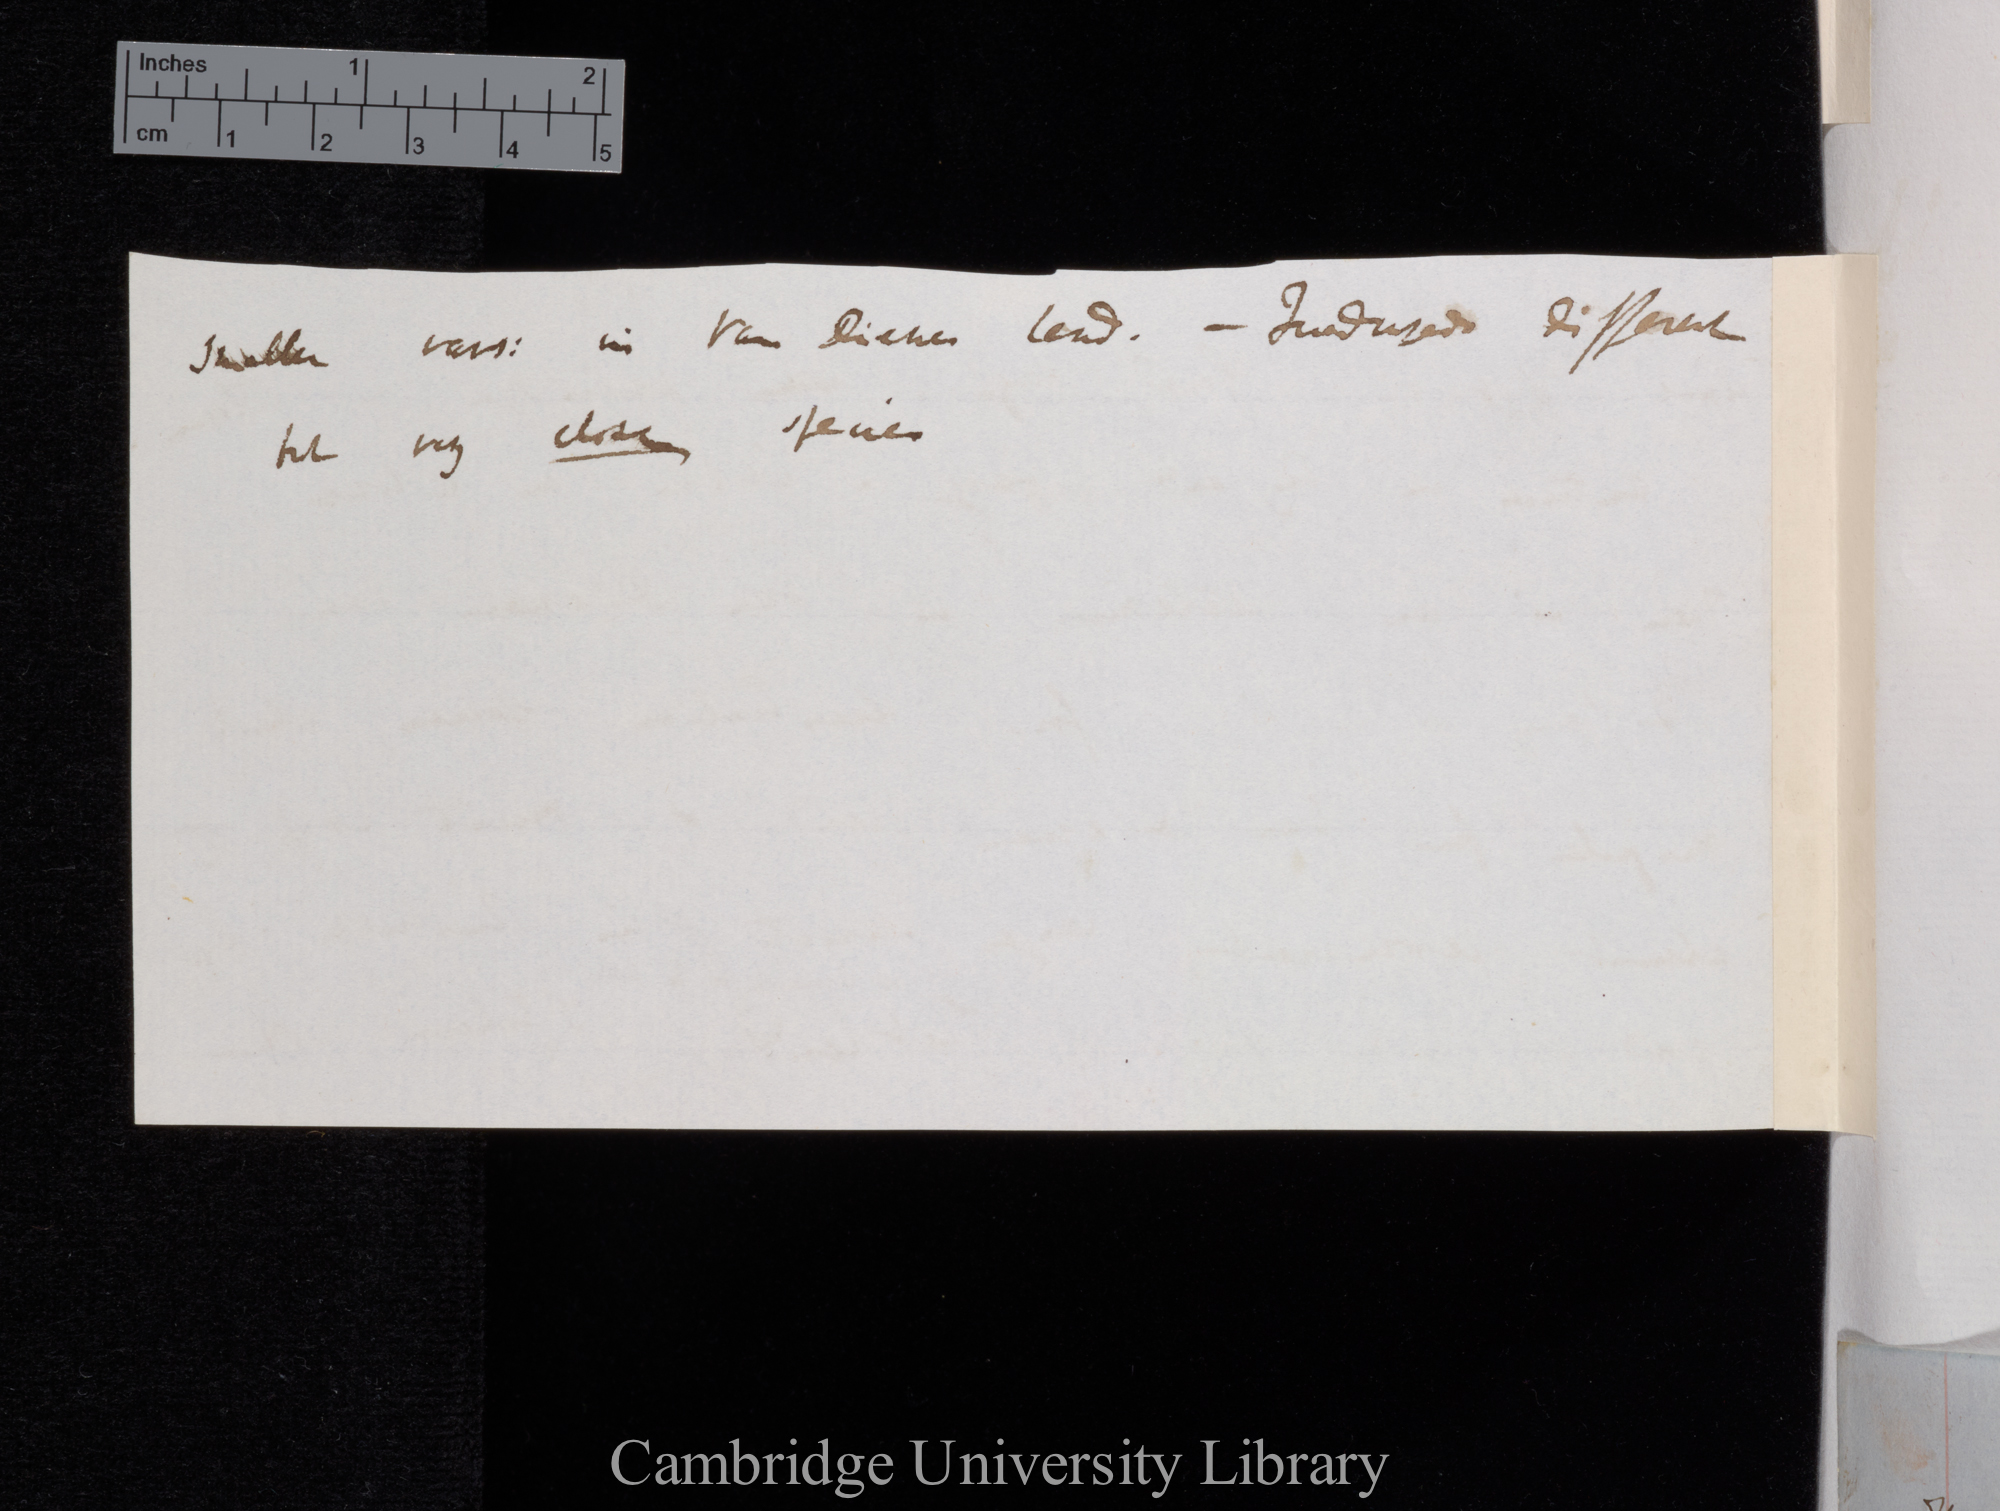 Inches 1 2
cm 1 2 3 4 5
Smaller vars: in Van Diemen Land. — different
but very close species
Cambridge University Library